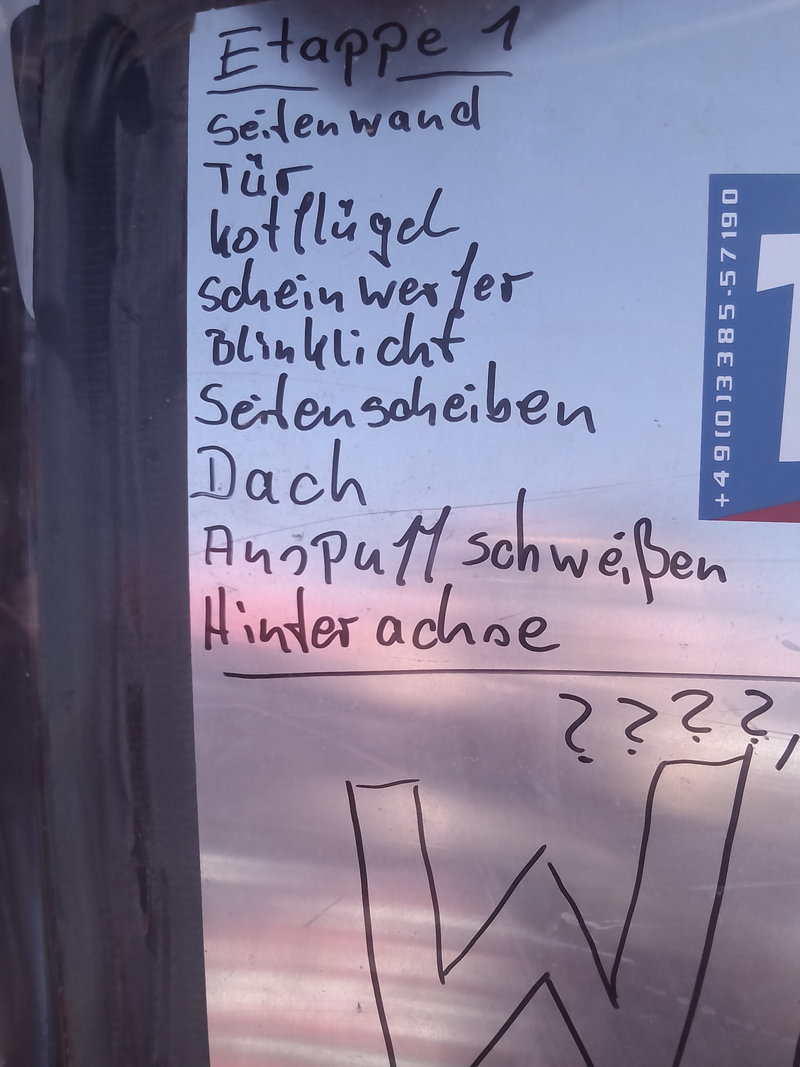 Etappe 1
Seitenwand
Tür
Kotflügel
Scheinwerfer
Blinklicht
Seitenscheiben
Dach
Auspuff schweißen
Hinterachse
????,
W
+49(0)3385-57190